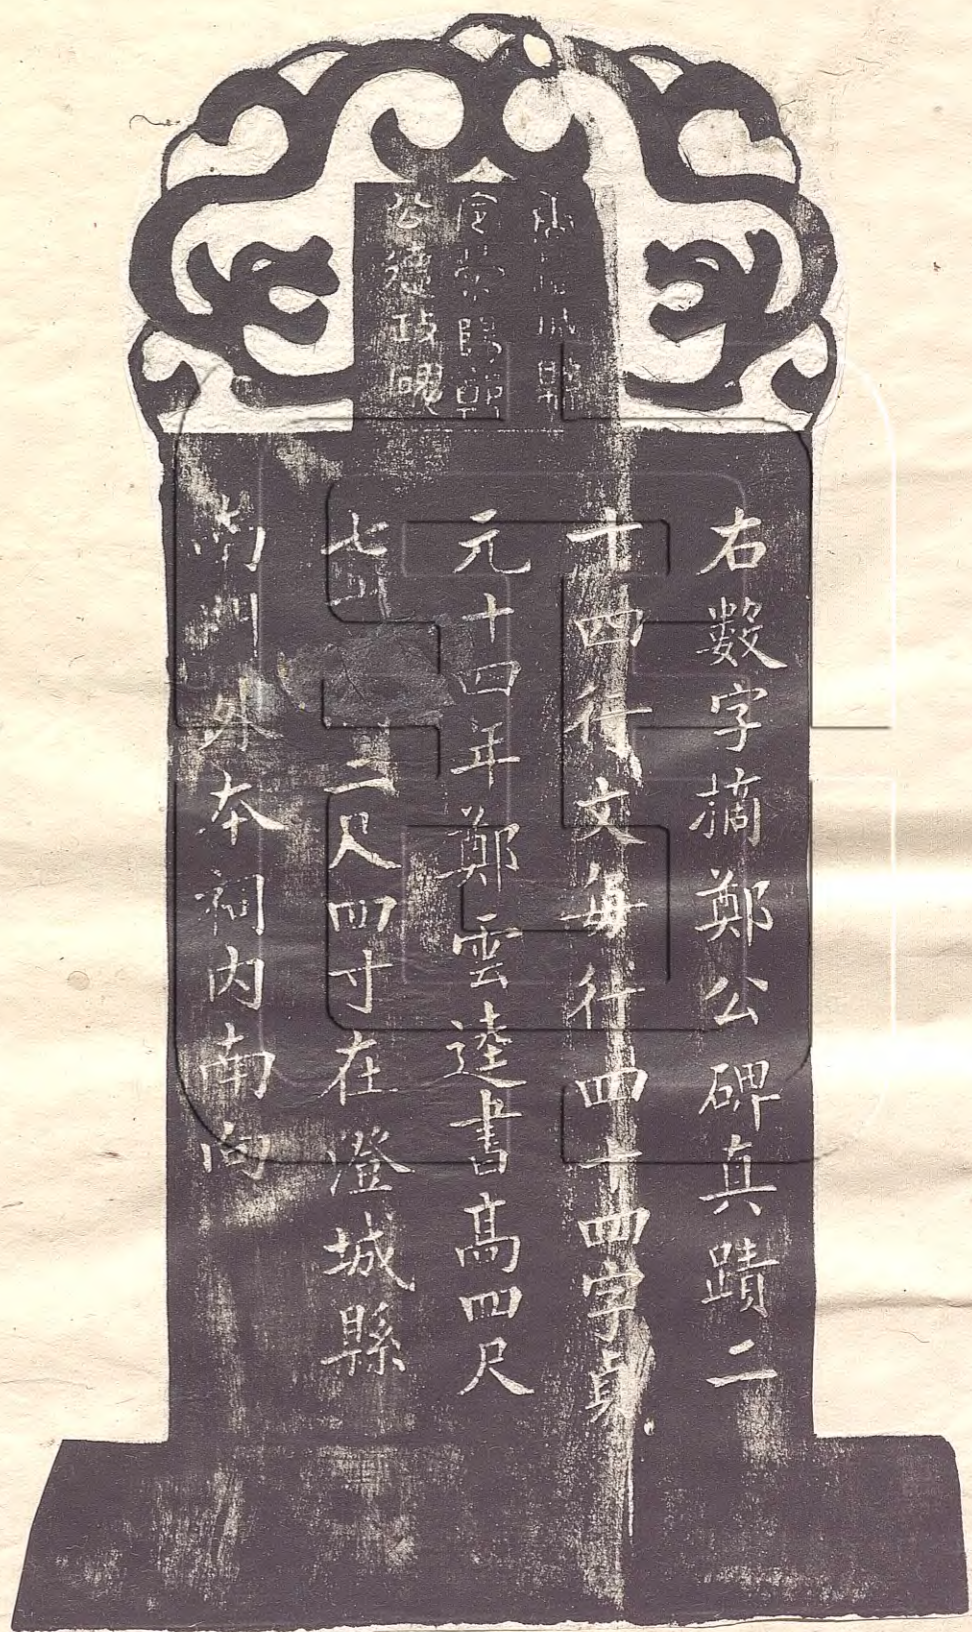 唐澄城縣
令滎陽鄭
公德政碑
右數字摘鄭公碑真蹟二
十四行文每行四十四字貞
元十四年鄭雲逵書高四尺
七 二尺四寸在澄城縣
南門外本祠内南向